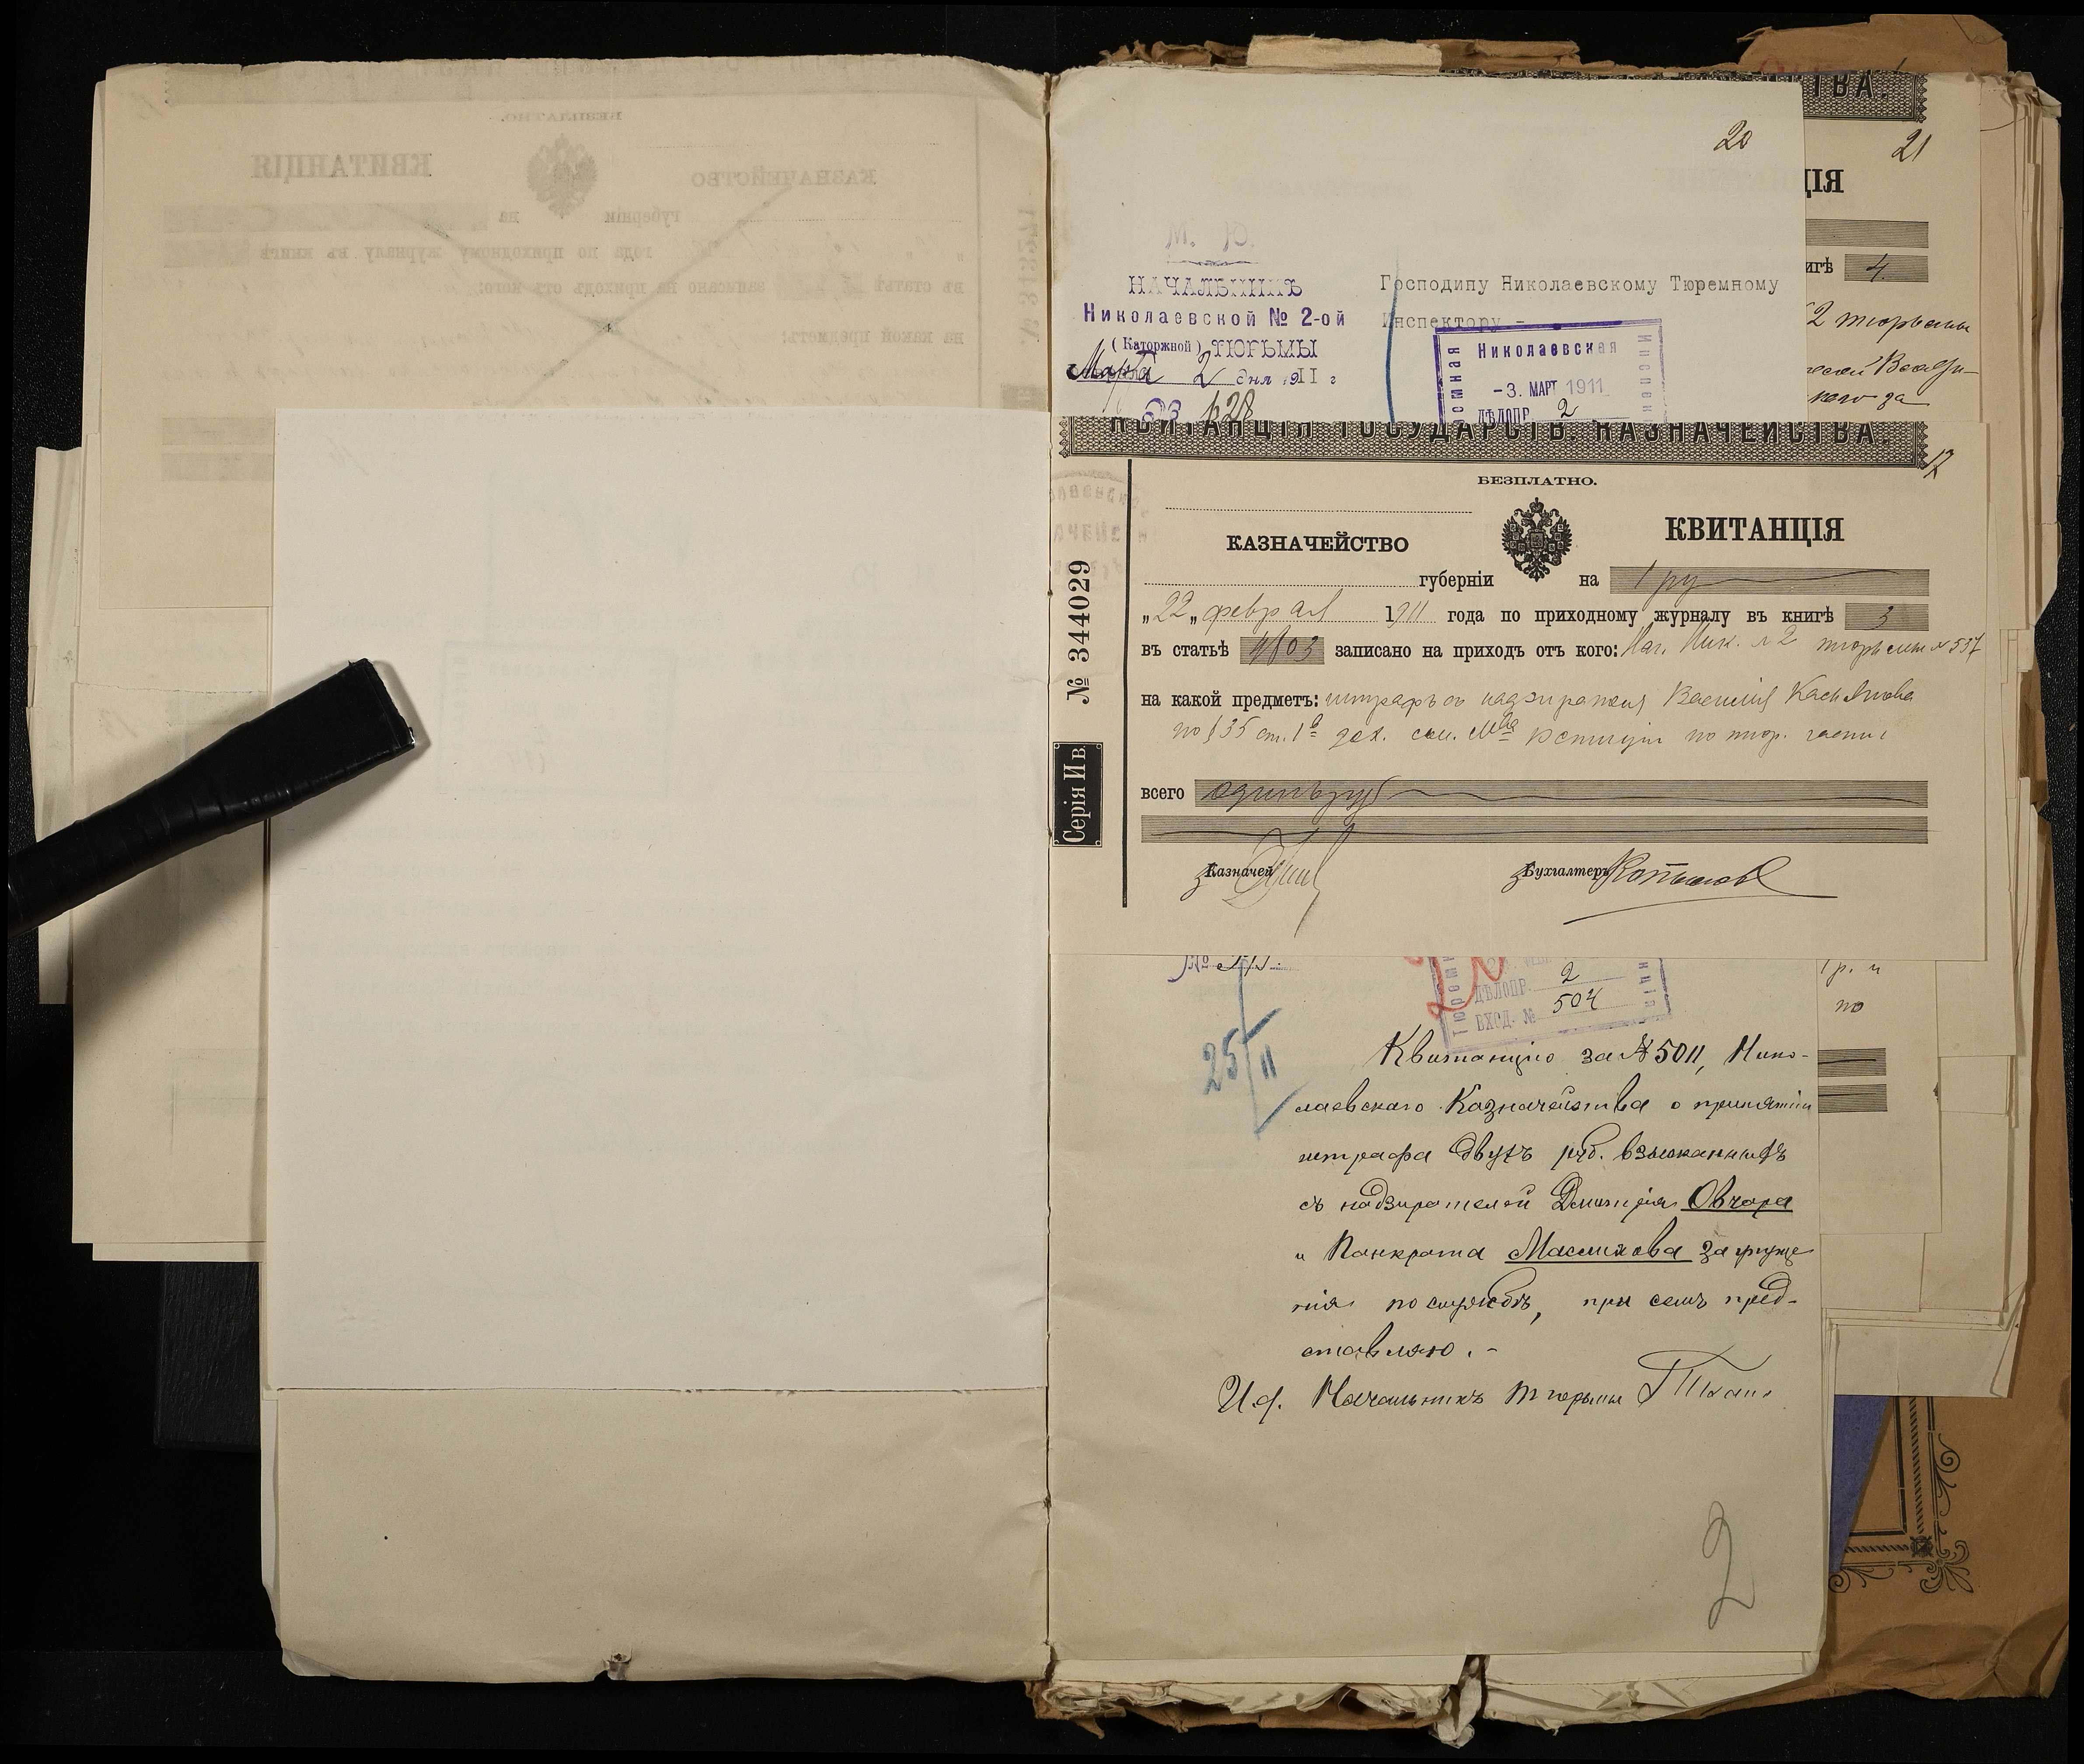 20
21
М. Ю.
НАЧАЛЬНИКЪ
Николаевской № 2-ой
(Каторжной) ТЮРЬМЫ
Марта 2 дня 1911 г
Господину Николаевскому Тюремному
Инспектору -
Николаевская
-3. МАР 1911
ДѢЛОПР. 2
ТВА.
ЦІЯ
игѣ 4.
2 тюрьмы
кого за
КВИТАНЦІЯ ГОСУДАРСТВ. КАЗНАЧЕЙСТВА.
БЕЗПЛАТНО.
КАЗНАЧЕЙСТВО
КВИТАНЦІЯ
губерніи на 1 ру
„22„ феврал 1911 года по приходному журналу въ книгѣ 3
въ статьѣ 4803 записано на приходъ отъ кого: Нач. Ник. № 2 тюрьмы № 537
на какой предметъ: штрафъ съ надзирателя Василія Касьянова
по § 35 ст. 1 дох. см. Мва Юстиціи по тюр. части
всего одинъ руб
Казначей
Бухгалтеръ
№ 344029
Серія И в.
ДѢЛОПР. 2
ВХОД. № 504
25/II
1 р. и
по
Квитанцію за № 5011, Нико-
лаевскаго Казначейства о принятіи
штрафа двухъ руб. взысканныхъ
съ надзирателей Дмитрія Овчара
и Панкрата Маслихова за упуще
нія по службѣ, при семъ пред-
ставляю. -
И.д. Начальникъ тюрьмы
2